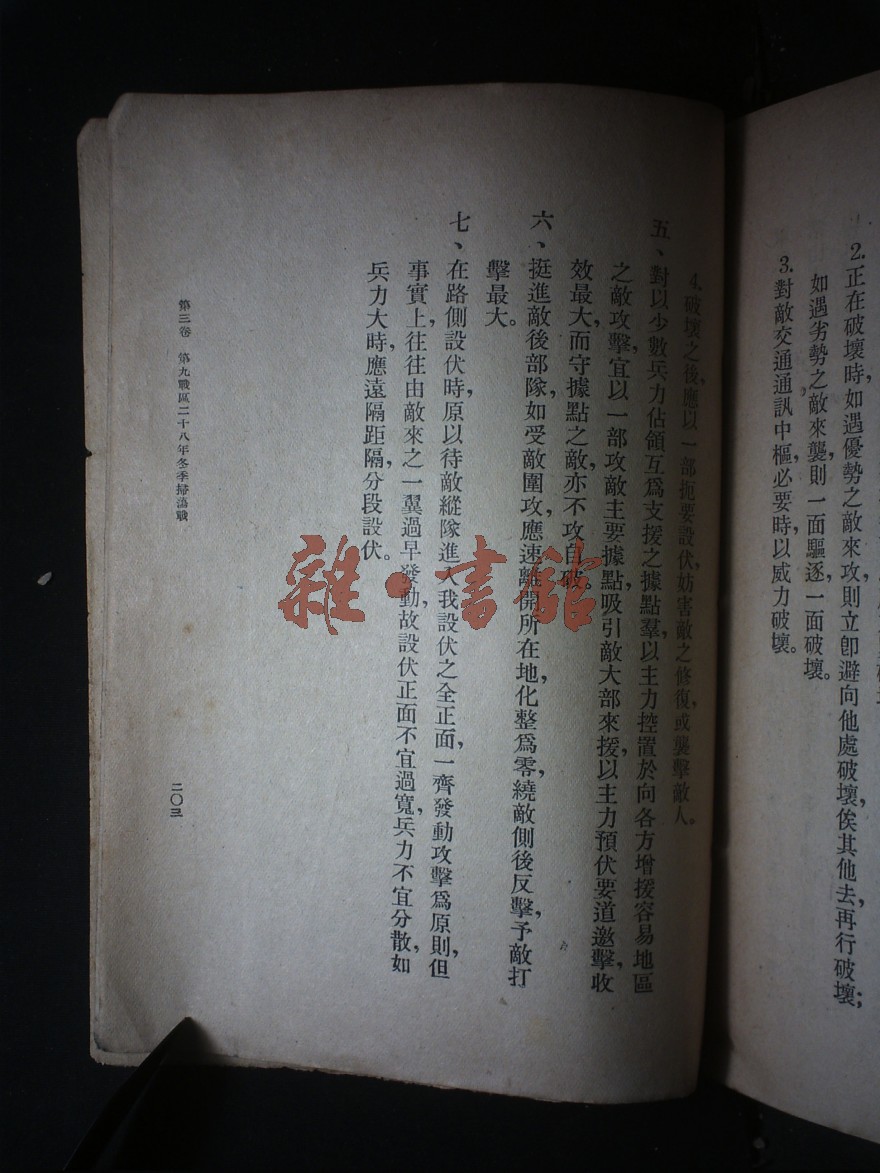 2.正在破壞時如遇優勢之敵來攻則立卽避向他處破壞,俟其他去,再行破壞;
如遇劣勢之敵來襲,則一面驅逐,一面破壞。
3.對敵交通通訊中樞必要時以威力破壞。
4.破壞之後,應以一部扼要設伏,妨害敵之修復,或襲擊敵人。
五、對以少數兵力佔領互爲支援之據點羣,以主力控置於向各方增援容易地區
之敵攻擊,宜以一部攻敵主要據點,吸引敵大部來援,以主力預伏要道邀擊,收
效最大,而守據點之敵,亦不攻自破。
六、挺進敵後部隊,如受敵圍攻,應速離開所在地,化整爲零,繞敵側後反擊,予敵打
擊最大。
七、在路側設伏時,原以待敵縱隊進入我設伏之全正面,一齊發動攻擊爲原則,但
事實上,往往由敵來之一翼過早發動,故設伏正面不宜過寬,兵力不宜分散,如
兵力大時,應遠隔距隔,分段設伏。
第三卷 第九戰區二十八年冬季掃蕩戰
二〇三
雜·書館